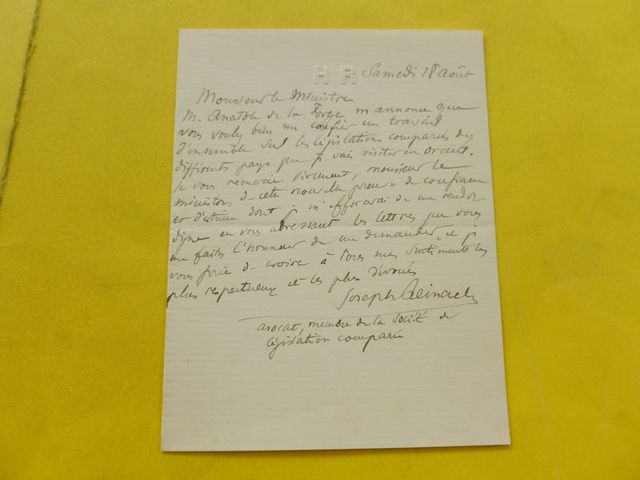 HR
Samedi 18 Août
Monsieur le Ministre
M. Anatole de la Forge m'annonce que
vous voulez bien me confier un travail
d'ensemble sur les législations comparées des
différents pays que je vais visiter en orient.
Je vous remercie vivement, monsieur le
ministre, de cette nouvelle preuve de confiance
et d'estime dont je m'efforcerai de me rendre
digne en vous adressant les lettres que vous
me faites l'honneur de me demander, et je
vous prie de croire à tous mes sentiments les
plus respectueux et les plus dévoués
Joseph Reinach
avocat, membre de la Société de
législation comparée